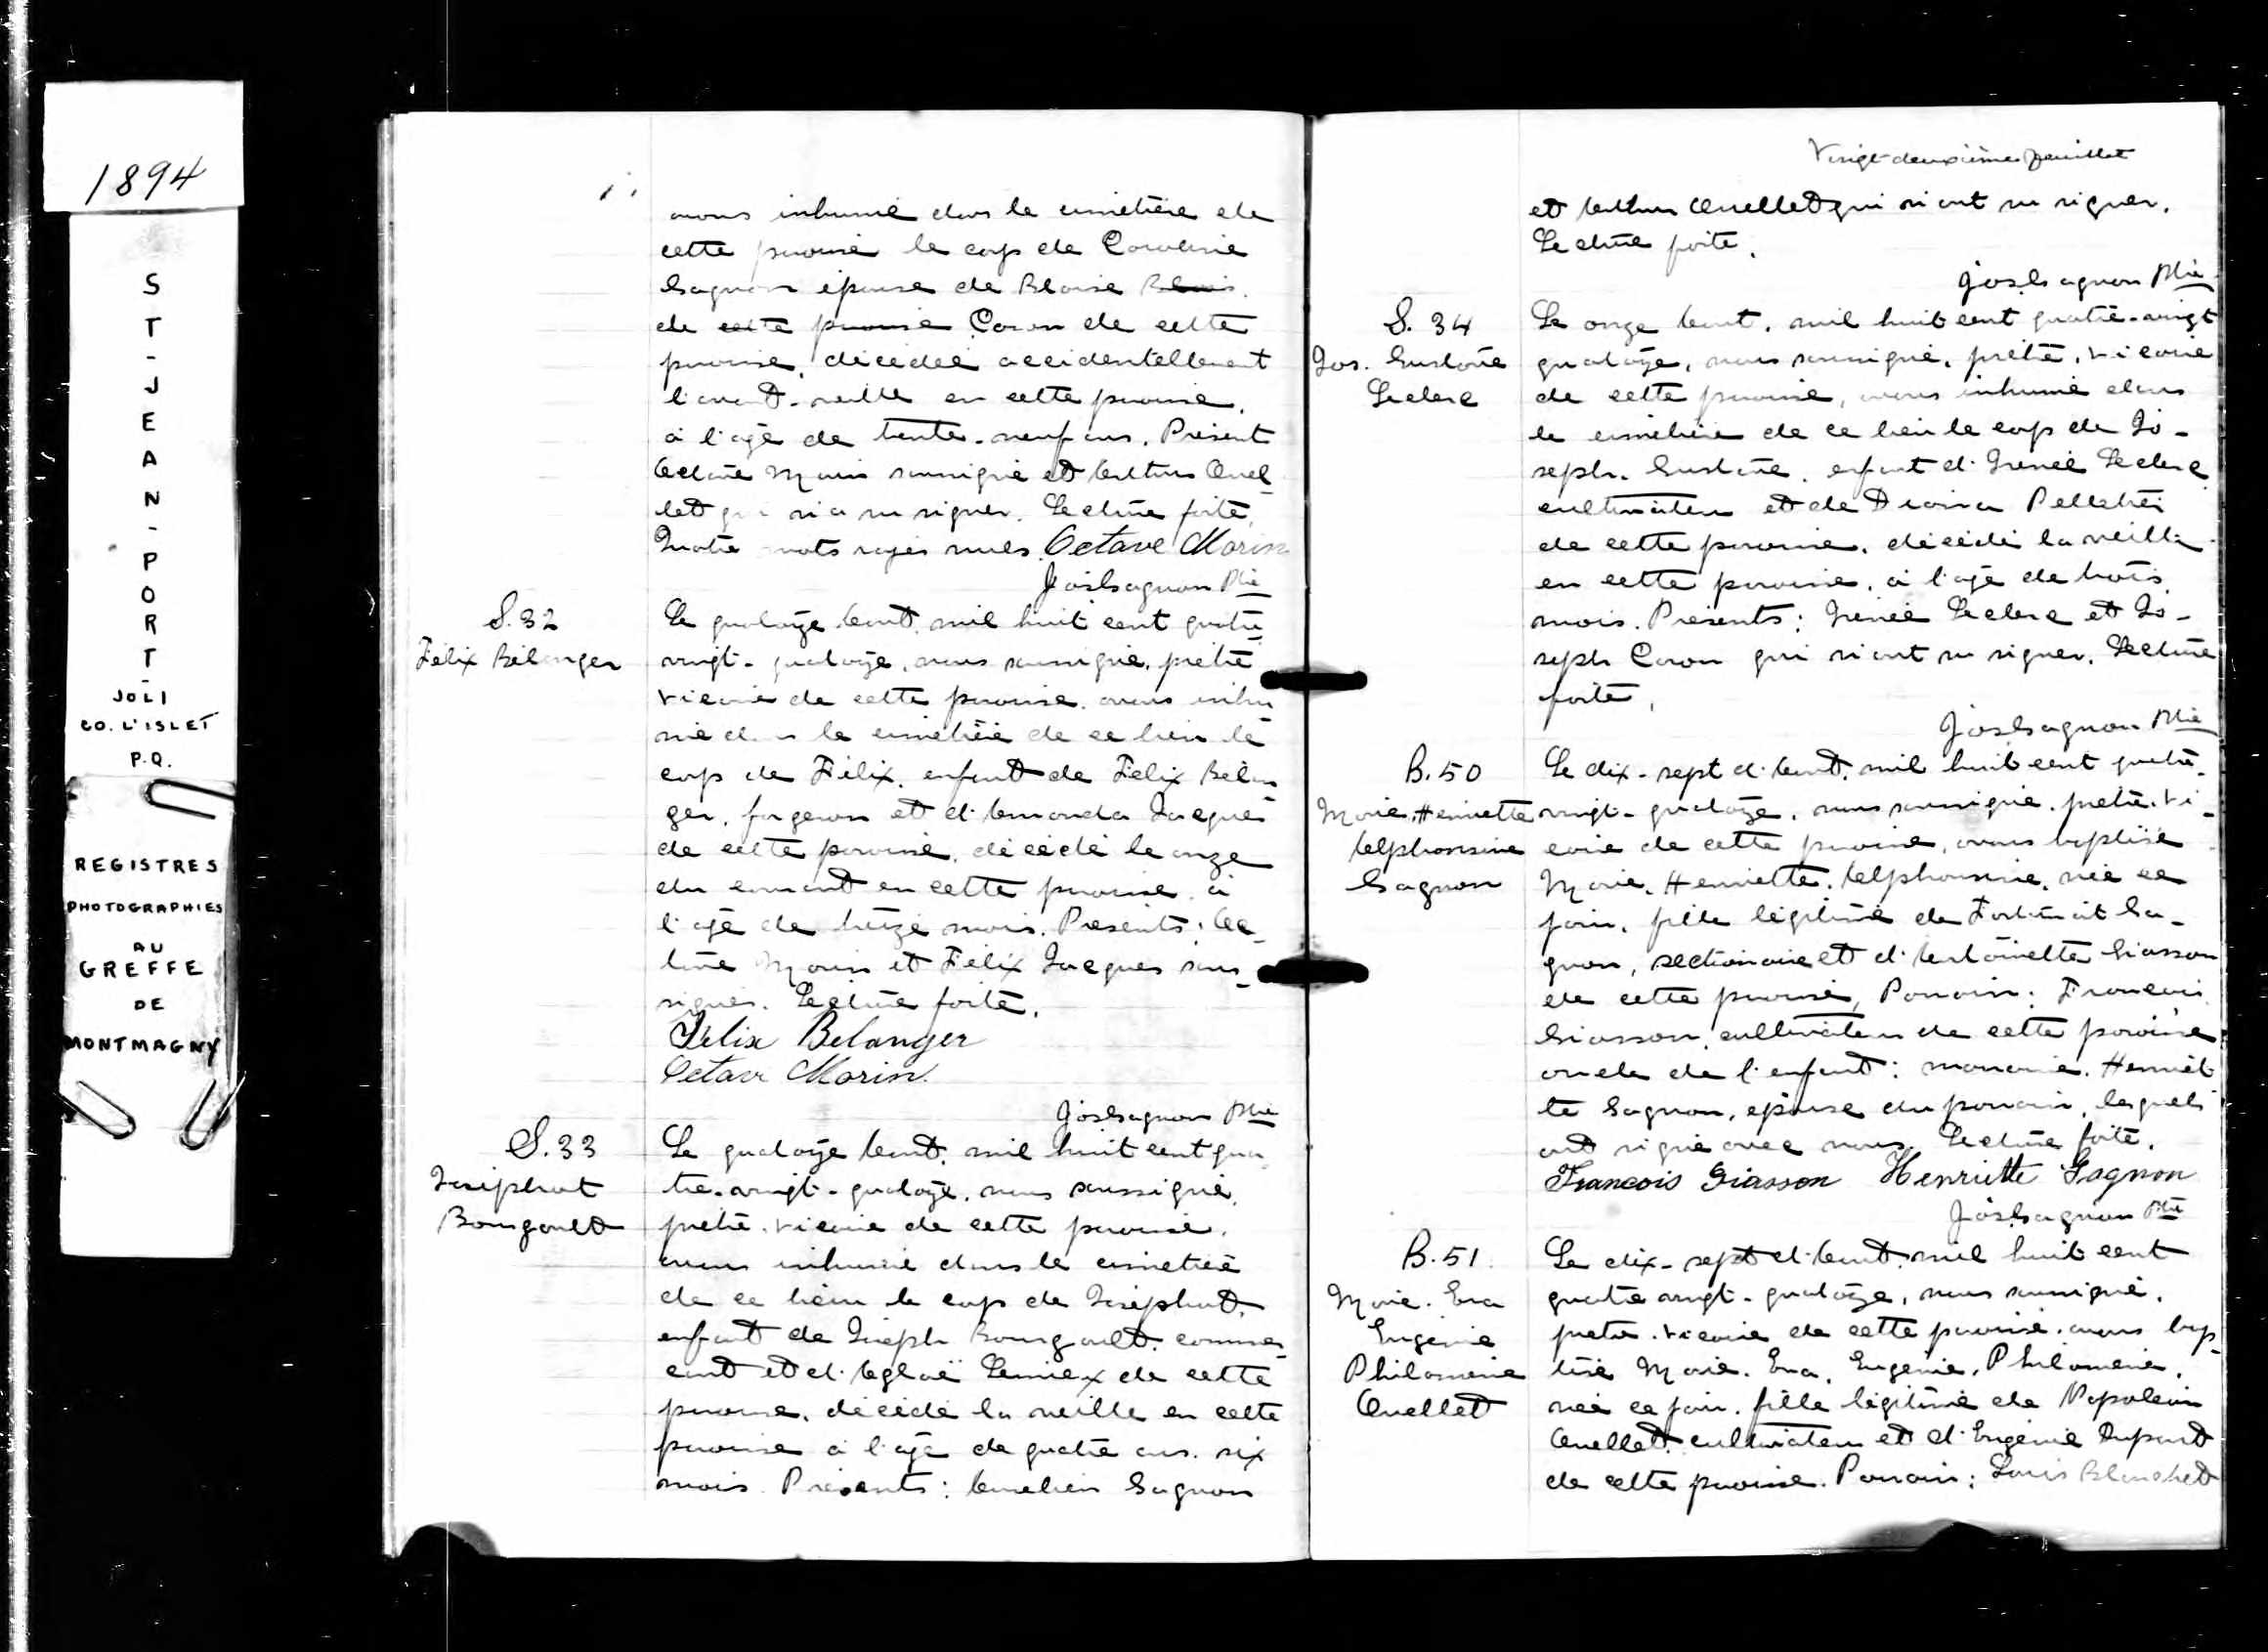 1894
S
T
-
J
E
A
N
-
P
O
R
T
-
JOLI
CO. L'ISLET
P.Q.
REGISTRES
PHOTOGRAPHIES
AU
GREFFE
DE
MONTMAGNY
avons inhumé dans le cimetière de
cette paroisse le corps de Caroline
Gagnon épouse de Blaise Blais.
de cette paroisse Caron de cette
paroisse, décédée accidentellement
l'avant-veille en cette paroisse,
à l'âge de trente-neuf ans. Présents
Octave Morin soussigné et Arthur Ouel-
let qui n'a su signer. Lecture faite,
Quatre mots rayés nuls. Octave Morin
Jos Gagnon Ptre
S. 32
Félix Bélanger
Le quatorze Août, mil huit cent quatre
vingt-quatorze, nous soussigné, prêtre
vicaire de cette paroisse, avons inhu-
mé dans le cimetière de ce lieu le
corps de Félix, enfant de Félix Bélan-
ger, forgeron et d'Amanda Jacques
de cette paroisse, décédé le onze
du courant en cette paroisse, à
l'âge de treize mois. Présents: Oc-
tave Morin et Félix Jacques sous-
signés. Lecture faite.
Félix Belanger
Octave Morin.
Jos Gagnon Ptre
S. 33
Joséphat
Bourgault
Le quatorze Août, mil huit cent qua-
tre-vingt-quatorze, nous soussigné,
prêtre-vicaire de cette paroisse,
avons inhumé dans le cimetière
de ce lieu le corps de Joséphat,
enfant de Joseph Bourgault, commer-
çant et d'Aglaë Lemiex de cette
paroisse, décédé la veille en cette
paroisse à l'âge de quatre ans, six
mois. Présents: Aurélien Gagnon
Vingt-deuxième feuillet
et Arthur Ouellet qui n'ont su signer.
Lecture faite.
Jos. Gagnon Ptre
S. 34
Jos. Gustave
Leclerc
Le onze Août, mil huit cent quatre-vingt
quatorze, nous soussigné, prêtre, vicaire
de cette paroisse, avons inhumé dans
le cimetière de ce lieu le corps de Jo-
seph, Gustave, enfant d'Irénée Leclerc
cultivateur et de Pelletier
de cette paroisse, décédé la veille
en cette paroisse, à l'âge de trois
mois. Présents: Irénée Leclerc et Jo-
seph Caron qui n'ont su signer. Lecture
faite,
Jos Gagnon Ptre
B. 50
Marie, Henriette
Alphonsine
Gagnon
Le dix-sept d'Août, mil huit cent quatre-
vingt-quatorze, nous soussigné, prêtre, vi-
caire de cette paroisse, avons baptisé
Marie, Henriette, Alphonsine, née ce
jour, fille légitime de Fortunat Ga-
gnon, sectionaire et d'Antoinette Giasson
de cette paroisse, Parrain: François
Giasson, cultivateur de cette paroisse
oncle de l'enfant: marraine, Henriet-
te Gagnon, épouse du parrain, lesquels
ont signé avec nous. Lecture faite.
Francois Giasson Henriette Gagnon
Jos. Gagnon Ptre
B. 51.
Marie. Eva
Eugénie
Philomène
Ouellet
Le dix-sept d'Août, mil huit cent
quatre vingt-quatorze, nous soussigné,
prêtre-vicaire de cette paroisse, avons bap-
tisé Marie, Eva, Eugénie, Philomène,
née ce jour, fille légitime de Napoléon
Ouellet, cultivateur et d'Eugénie Dupont
de cette paroisse. Parrain: Louis Blanchet